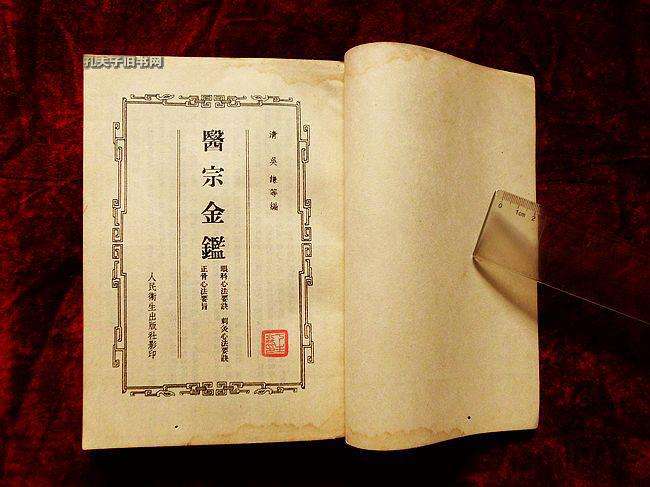 孔夫子旧书网
清 吳謙等編
醫宗金鑑
眼科心法要訣 刺灸心法要訣
正骨心法要旨
人民衛生出版社影印
0 1cm 2